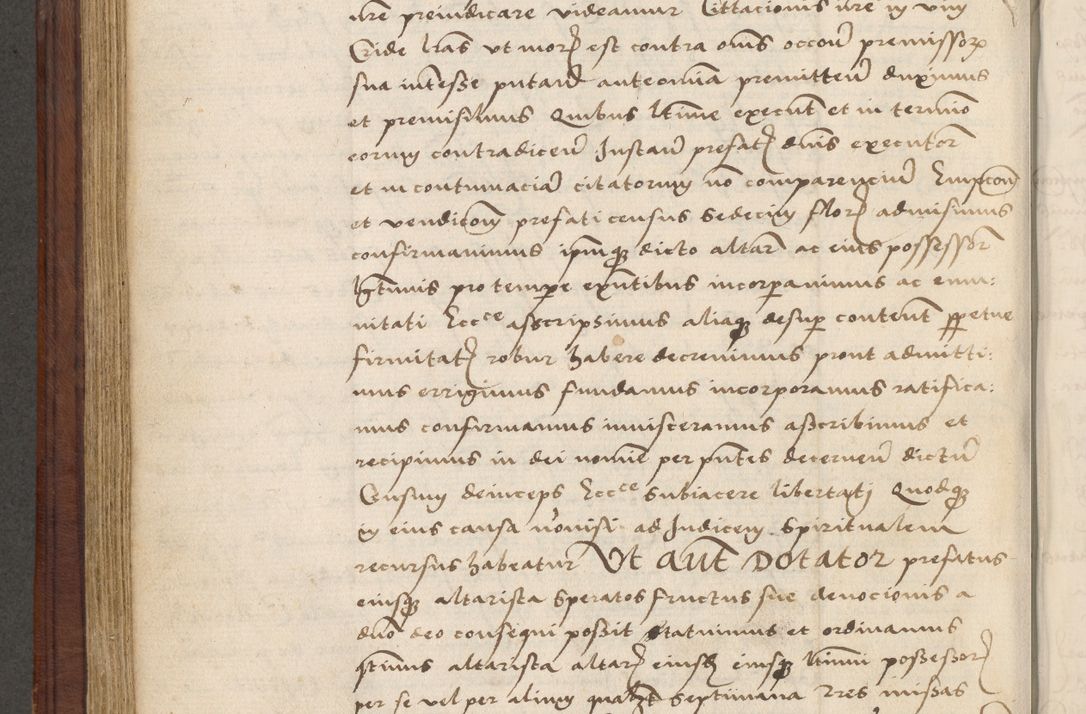 nre preiudicare videamur Cittacionis nre in vim
Cride lras vt mor est contra oms occoru premissorum
sua interesse putan anteomia premitten duximus
et premisimus Quibus ltime execut et in termino
eorum contradicen Instan prefat dnis executor
et in contumaciam citatorum no comparenciu Empcom
et vendicom prefati census sedecim flor admisimus
confirmauimus ipmque dicto altari ac eius possessor
lgtimis pro tempore exntibus incorporauimus ac emu:
nitati Eccce asscripsimus aliaque desuper content perpetue
firmitat robur habere decreuimus prout admitti:
mus erigimus fundamus incorporamus ratifica:
mus confirmamus inuisceramus asscribimus et
recipimus in dei nomie per pntes decernen dictu
Censum deinceps Eccce subiacere libertati Quodque
in eius causa nonisi ad Iudicem spiritualem
recursus habeatur Vt aut Dotator prefatus
eiusque altarista speratos fructus sue deuocionis a
dno deo consequi possit statuimus et ordinamus
qtinus altarista altar eiusd eiusque ltimi possessor
per se vel per alium qualibet septimana tres missas